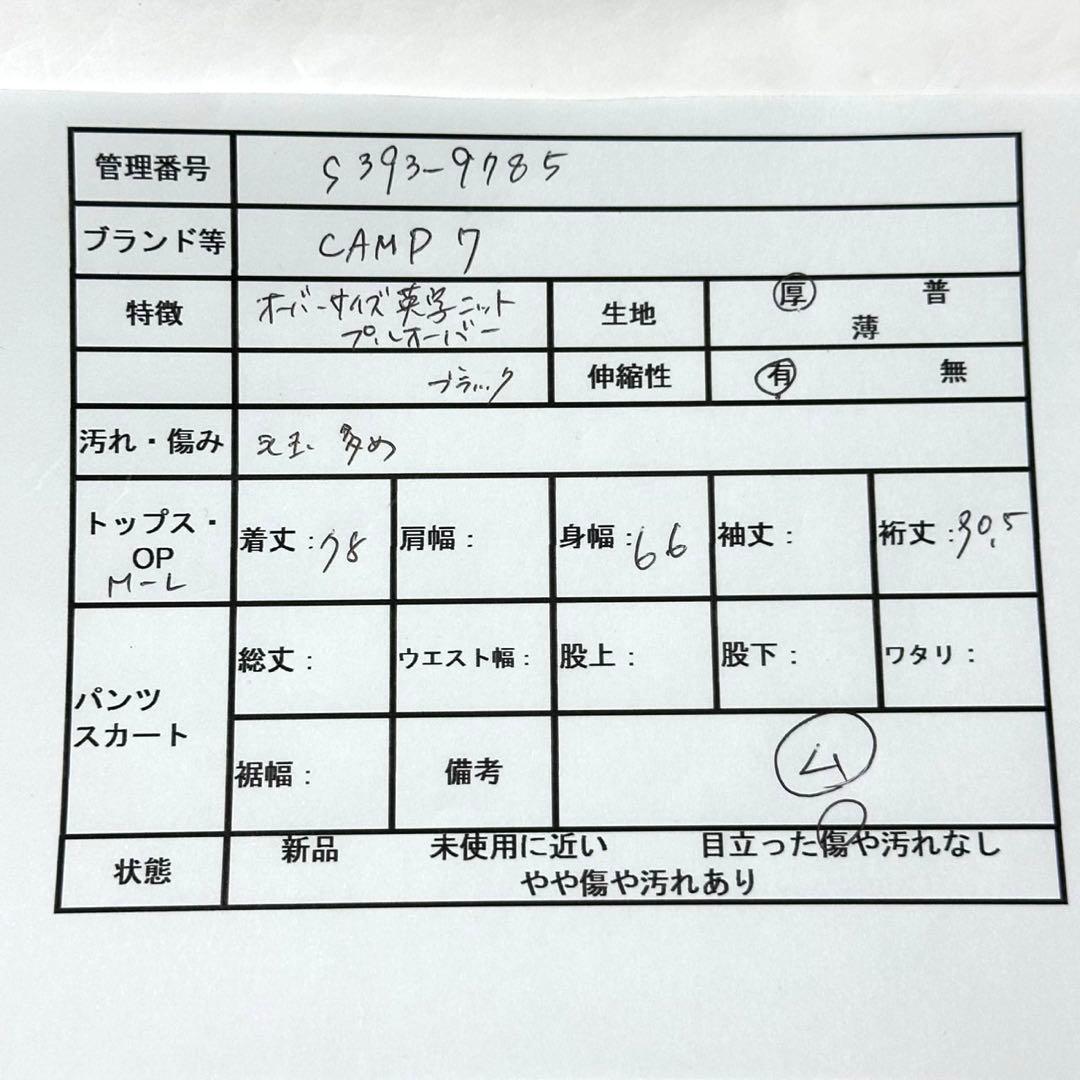 管理番号 S393-9785
ブランド等 CAMP 7
特徴 オーバーサイズ英字ニット 生地 厚 普
プルオーバー 薄
ブラック 伸縮性 有 無
汚れ・傷み 毛玉 多め
トップス・
OP 着丈:78 肩幅: 身幅:66 袖丈: 裄丈:
M-L
パンツ
スカート 総丈: ウエスト幅: 股上: 股下: ワタリ:
裾幅: 備考 ム
状態 新品 未使用に近い 目立った傷や汚れなし
やや傷や汚れあり